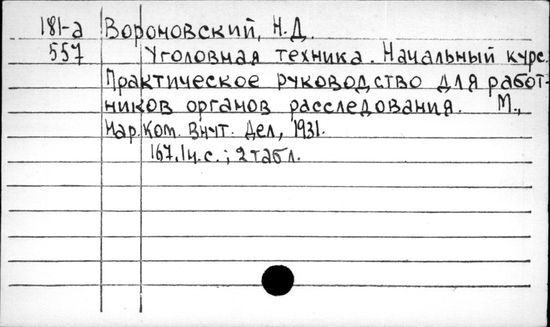 181-а Вороновский, Н.Д.
557 Уголовная техника. Начальный курс.
Практическое руководство для работ-
ников органов расследования. М.,
Нар.Ком. Внут. Дел, 1931.
167, 1 ч.с.; 2 табл.